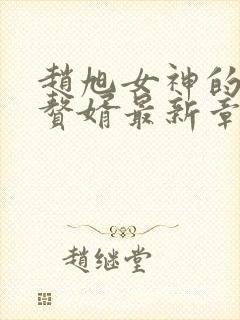 趙旭女神的
贅婿最新章
趙继堂